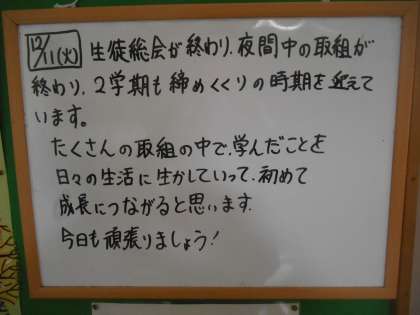 12/11(火) 生徒総会が終わり、夜間中の取組が
終わり、2学期も締めくくりの時期を迎えて
います。
たくさんの取組の中で、学んだことを
日々の生活に生かしていって、初めて
成長につながると思います。
今日も頑張りましょう!